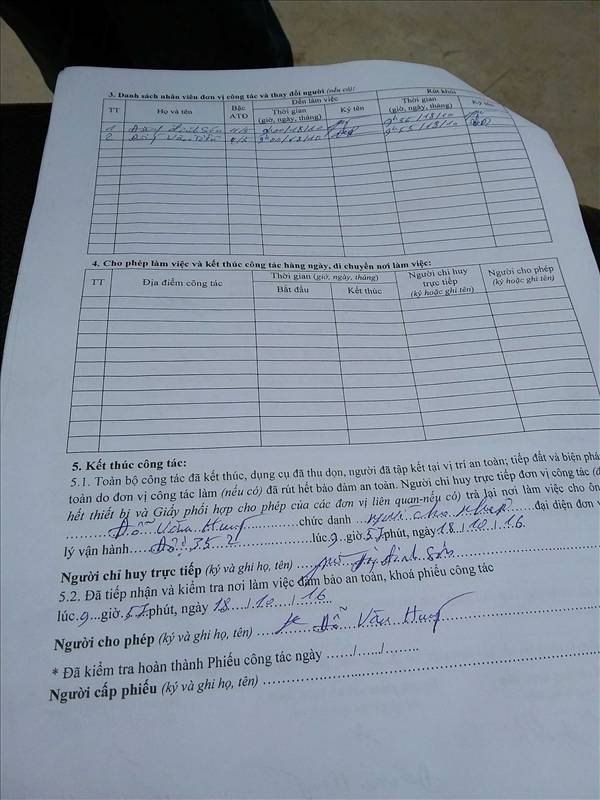 3. Danh sách nhân viên đơn vị công tác và thay đổi người (nếu có):
TT Họ và tên Bậc ATĐ Đến làm việc Rút khỏi
Thời gian (giờ, ngày, tháng) Ký tên Thời gian (giờ, ngày, tháng) Ký tên
1
2
4. Cho phép làm việc và kết thúc công tác hàng ngày, di chuyển nơi làm việc:
TT Địa điểm công tác Thời gian (giờ, ngày, tháng) Người chỉ huy trực tiếp (ký hoặc ghi tên) Người cho phép (ký hoặc ghi tên)
Bắt đầu Kết thúc
5. Kết thúc công tác:
5.1. Toàn bộ công tác đã kết thúc, dụng cụ đã thu dọn, người đã tập kết tại vị trí an toàn; tiếp đất và biện phá
toàn do đơn vị công tác làm (nếu có) đã rút hết bảo đảm an toàn. Người chỉ huy trực tiếp đơn vị công tác (đ
hết thiết bị và Giấy phối hợp cho phép của các đơn vị liên quan-nếu có) trả lại nơi làm việc cho ôn
Đỗ Văn Hung chức danh người cho phép đại diện đơn v
lý vận hành lúc 9 giờ 57 phút, ngày 18/10/16
Người chỉ huy trực tiếp (ký và ghi họ, tên)
5.2. Đã tiếp nhận và kiểm tra nơi làm việc đảm bảo an toàn, khoá phiếu công tác
lúc 9 giờ 57 phút, ngày 18/10/16
Người cho phép (ký và ghi họ, tên) Đỗ Văn Hung
* Đã kiểm tra hoàn thành Phiếu công tác ngày ....../....../........
Người cấp phiếu (ký và ghi họ, tên)